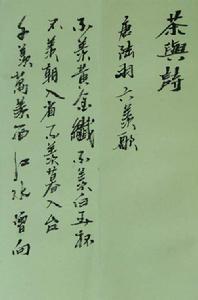 茶與詩
唐陸羽六羨歌
不羨黃金罍不羨白玉杯
不羨朝入省不羨暮入台
千羨萬羨西江水曾向